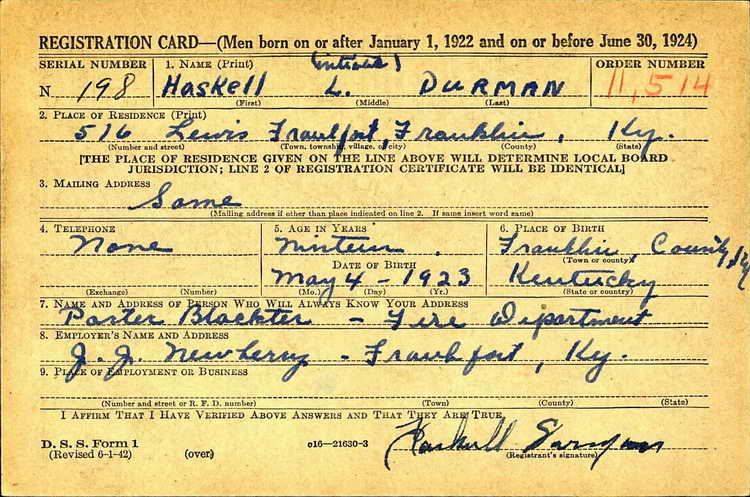 REGISTRATION CARD—(Men born on or after January 1, 1922 and on or before June 30, 1924)
SERIAL NUMBER 1. NAME (Print) (initial) ORDER NUMBER
N 198 Haskell L. DURMAN 11,514
(First) (Middle) (Last)
2. PLACE OF RESIDENCE (Print)
516 Lewis Frankfort, Franklin, Ky.
(Number and street) (Town, township, village, or city) (County) (State)
[THE PLACE OF RESIDENCE GIVEN ON THE LINE ABOVE WILL DETERMINE LOCAL BOARD
JURISDICTION; LINE 2 OF REGISTRATION CERTIFICATE WILL BE IDENTICAL]
3. MAILING ADDRESS
Same
(Mailing address if other than place indicated on line 2. If same insert word same)
4. TELEPHONE 5. AGE IN YEARS 6. PLACE OF BIRTH
None Ninteen. Franklin County
(Town or county)
DATE OF BIRTH
May 4 - 1923 Kentucky
(Exchange) (Number) (Mo.) (Day) (Yr.) (State or country)
7. NAME AND ADDRESS OF PERSON WHO WILL ALWAYS KNOW YOUR ADDRESS
Porter - Fire Department
8. EMPLOYER'S NAME AND ADDRESS
J. J. Newberry - Frankfort, Ky.
9. PLACE OF EMPLOYMENT OR BUSINESS
(Number and street or R. F. D. number) (Town) (County) (State)
I AFFIRM THAT I HAVE VERIFIED ABOVE ANSWERS AND THAT THEY ARE TRUE
D. S. S. Form 1 16—21630-3 Haskell Durman
(Revised 6-1-42) (over) (Registrant's signature)